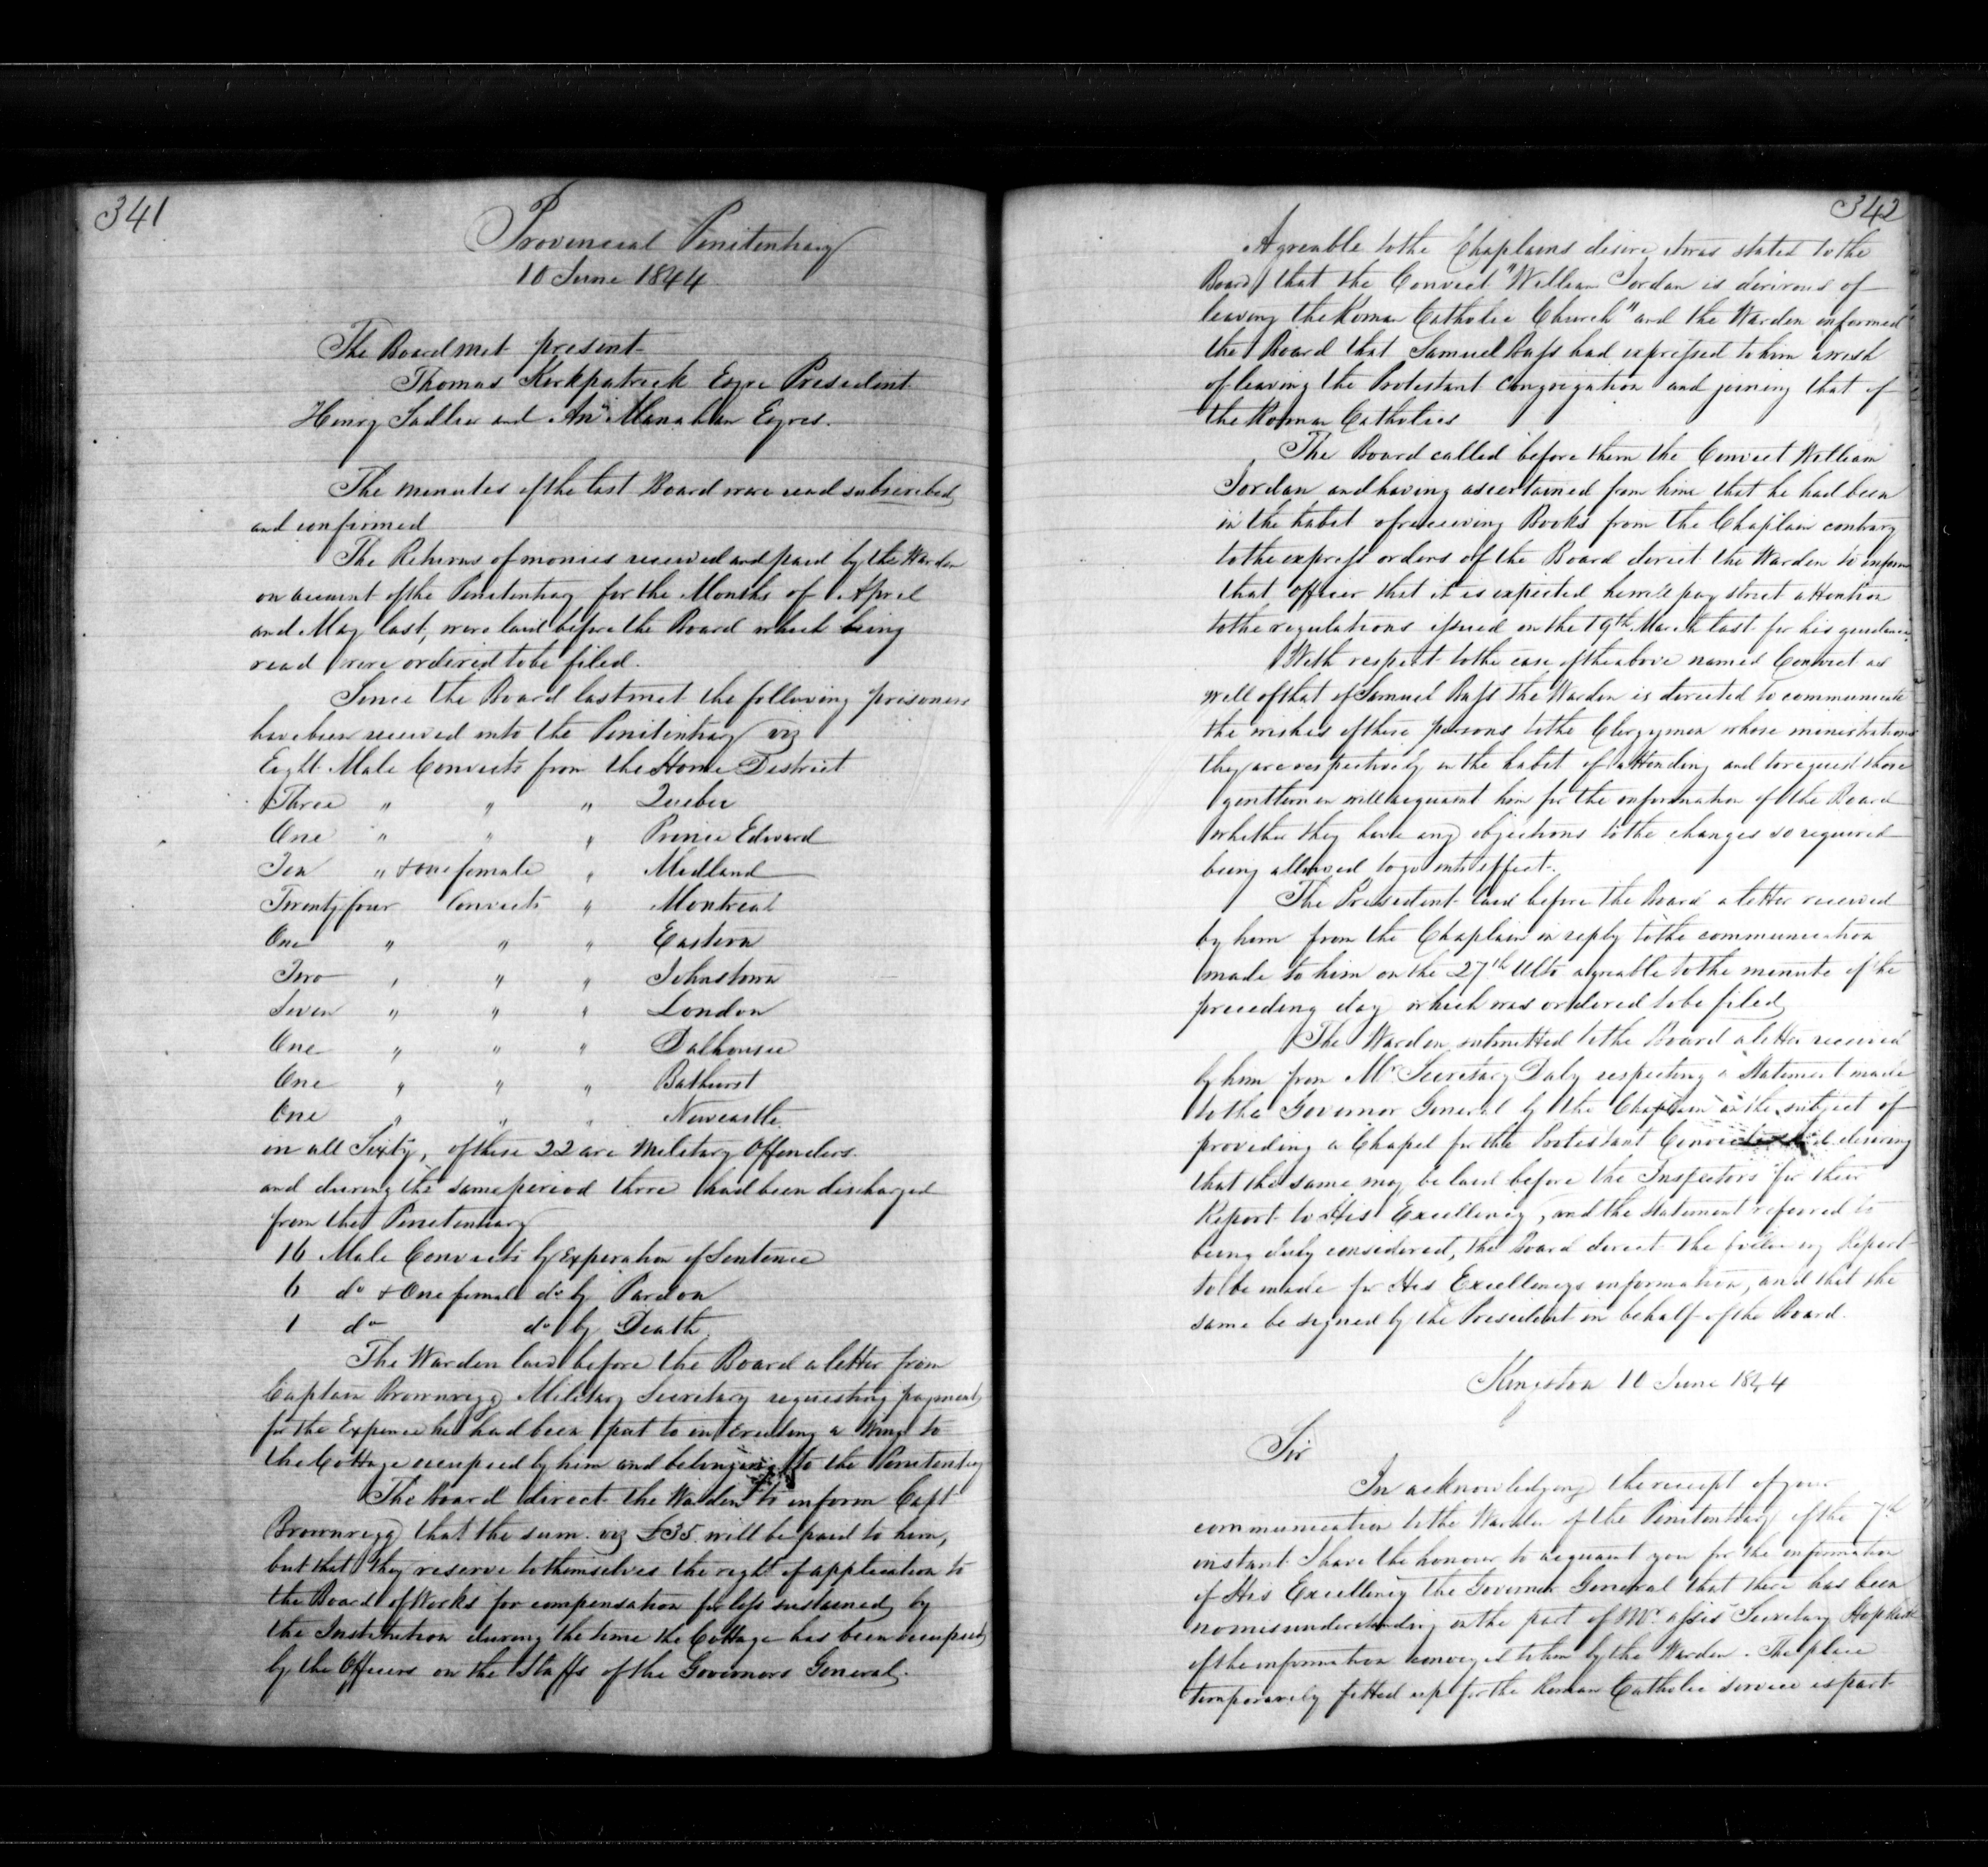 341
Provincial Penitentiary
10 June 1844
The Board met present
Thomas Kirkpatrick Esqre President
Henry Sadlier and Any Manahan Esqres.
The minutes of the last Board were read subscribed
and confirmed
The Returns of monies received and paid by the Warden
on account of the Penitentiary for the Months of April
and May last, were laid before the Board which being
read were ordered to be filed.
Since the Board last met the following prisoners
have been received into the Penitentiary viz
Eight Male Convicts from the Home District
Three " " " Quebec
One " " " Prince Edward
Ten " & one female " Midland
Twenty four Convicts " Montreal
One " " " Eastern
Two " " " Johnstown
Seven " " " London
One " " " Dalhousie
One " " " Bathurst
One " " " Newcastle
in all Sixty, of these 22 are Military Offenders.
and during the same period there had been discharged
from the Penitentiary
16 Male Convicts by Experation of Sentence
6 do & One female do by Pardon
1 do do by Death.
The Warden laid before the Board a letter from
Captain Brownrigg Military Secretary requesting payment
for the Expence he had been put to in Erecting a Wing to
the Cottage occupied by him and belonging to the Penitentiary
The Board direct the Warden to inform Capt
Brownrigg that the sum viz £35 will be paid to him,
but that they reserve to themselves the right of application to
the Board of Works for compensation for loss sustained by
the Institution during the time the Cottage has been occupied
by the Officers on the Staffs of the Governors General.
342
Agreable to the Chaplains desire it was stated to the
Board that the Convict "William Jordan is desirous of
leaving the Roman Catholic Church" and the Warden informed
the Board that Samuel Bass had expressed to him a wish
of leaving the Protestant Congregation and joining that of
the Roman Catholics
The Board called before them the Convict William
Jordan and having ascertained from him that he had been
in the habit of receiving Books from the Chaplain contrary
to the express orders of the Board direct the Warden to inform
that officer that it is expected he will pay strict attention
to the regulations issued on the 19th March last for his guidance.
With respect to the case of the above named Convict as
well of that of Samuel Bass the Warden is directed to communicate
the wishes of these persons to the Clergymen whose ministrations
they are respectively in the habit of attending and to request those
gentlemen will acquaint him for the information of the Board
whether they have any objections to the changes so required
being allowed to go into effect.
The President laid before the Board a letter received
by him from the Chaplain in reply to the communication
made to him on the 27th Ulto agreable to the minute of the
preceding day which was ordered to be filed
The Warden submitted to the Board a letter received
by him from Mr Secretary Daly respecting a Statement made
to the Governor General by the Chaplain on the subject of
providing a Chapel for the Protestant Convicts desiring
that the same may be laid before the Inspectors for their
Report to His Excellency, and the Statement referred to
being duly considered, the Board direct the following Report
to be made for His Excellencys information, and that the
same be signed by the President in behalf of the Board.
Kingston 10 June 1844
Sir
In acknowledging the receipt of your
communication to the Warden of the Penitentiary of the 7th
instant I have the honour to acquaint you for the information
of His Excellency the Governor General that there has been
no misunderstanding on the part of Mr assis Secretary Hopkirk
of the information conveyed to him by the Warden. The place
temporarily fitted up for the Roman Catholic service is part